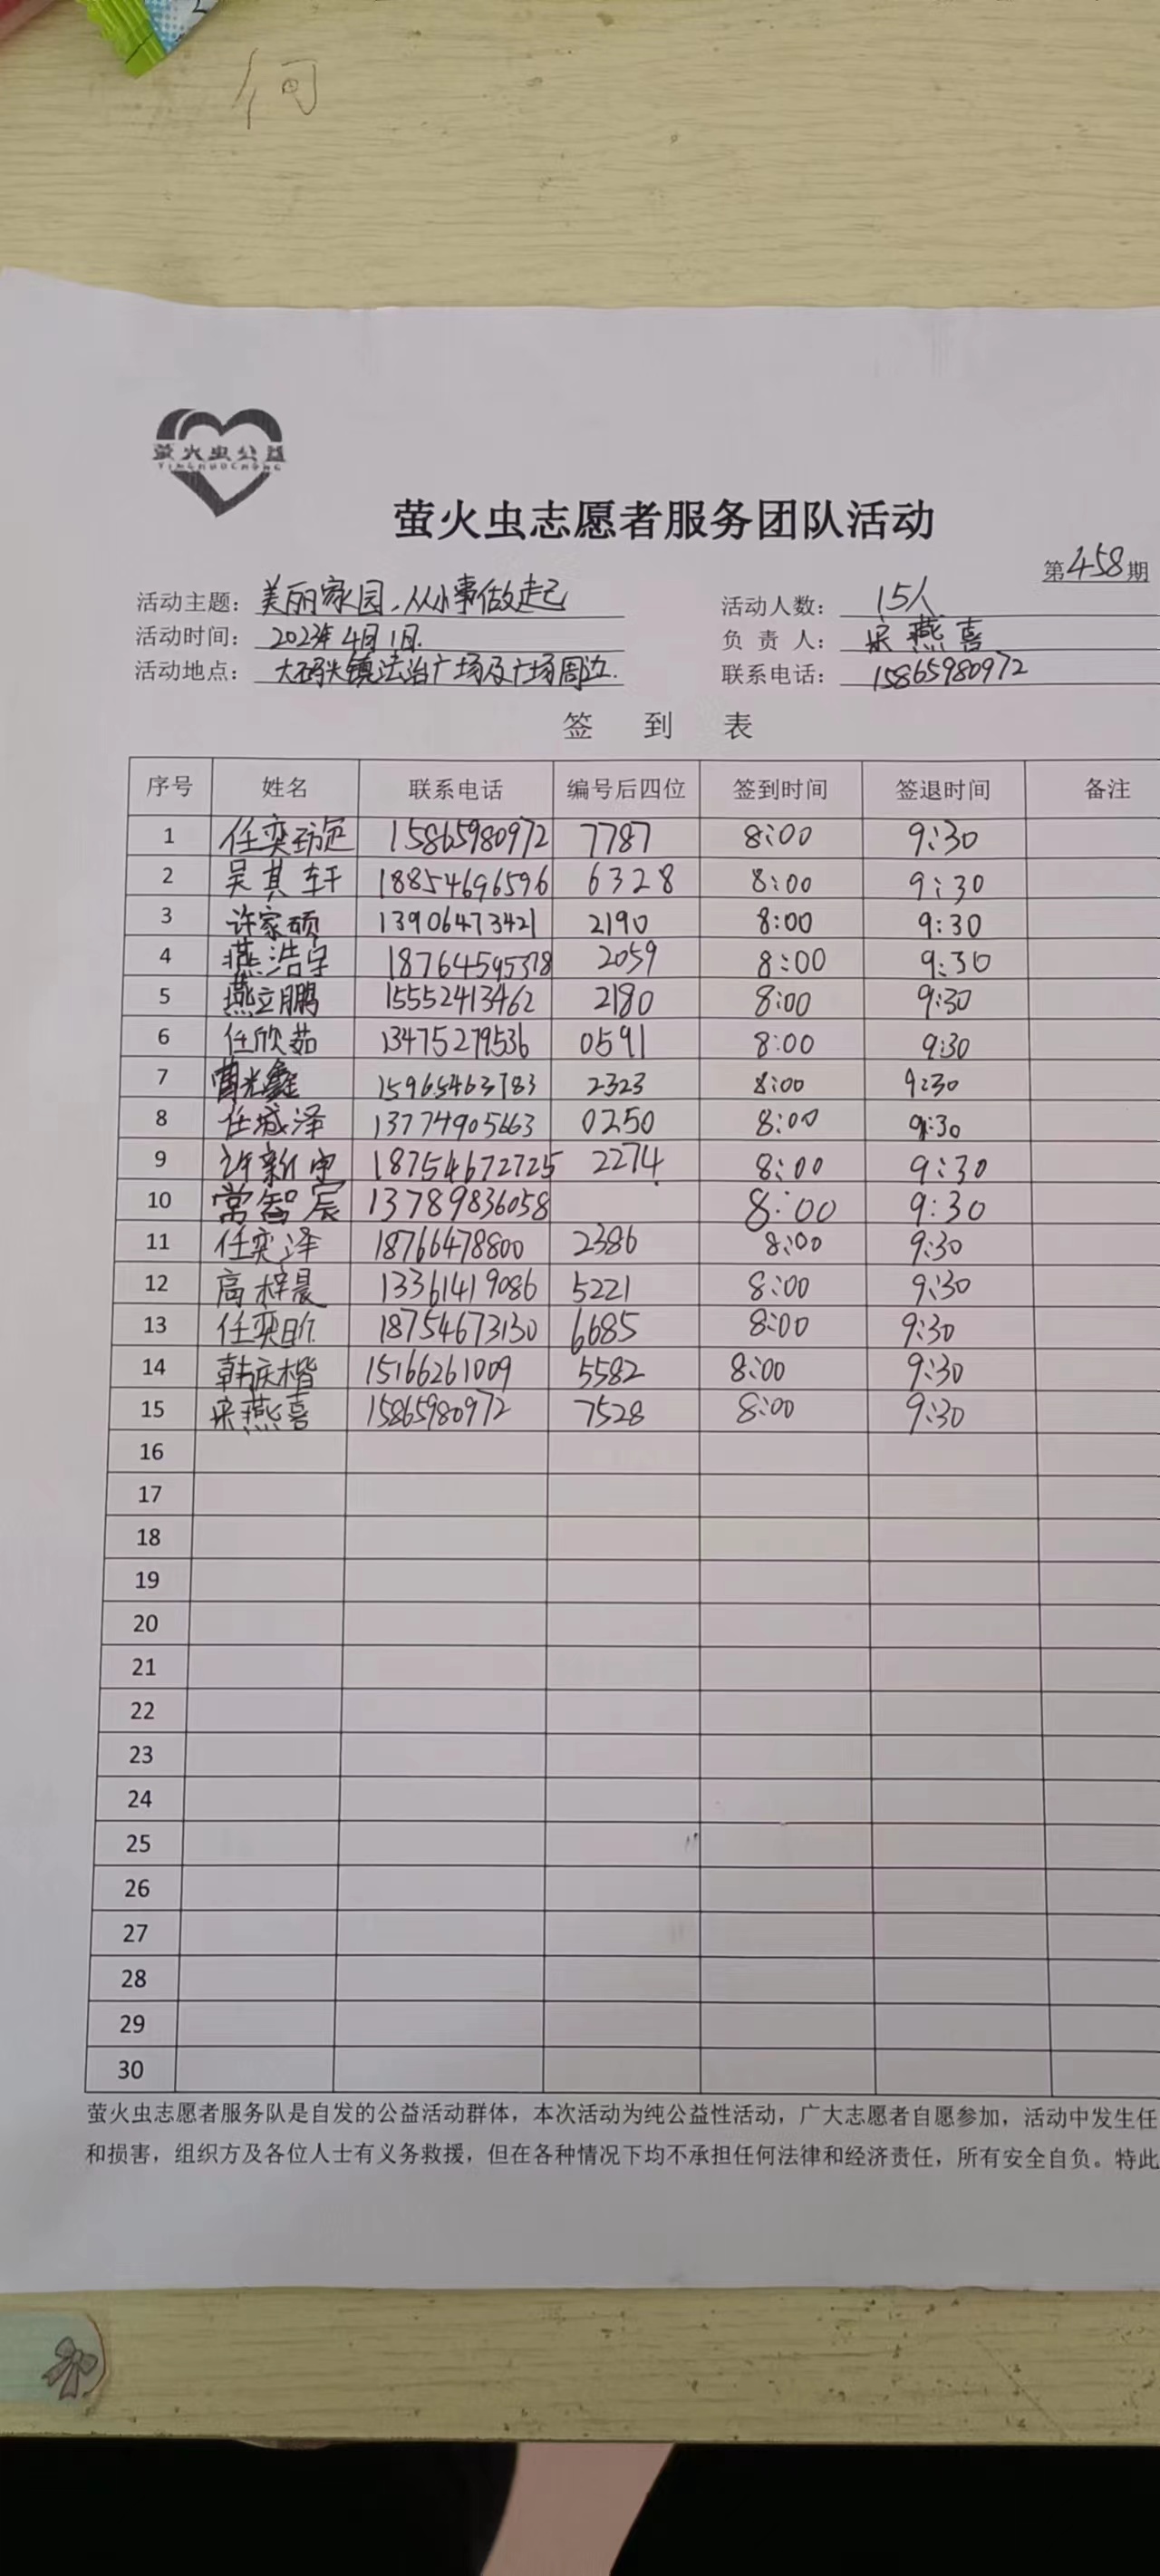 何
萤火虫公益
YINGHUOCHONG
萤火虫志愿者服务团队活动
第458期
活动主题：美丽家园，从小事做起 活动人数：15人
活动时间：2023年4月1日. 负 责 人：宋燕喜
活动地点：大码头镇法治广场及广场周边. 联系电话：15865980972
签 到 表
序号 姓名 联系电话 编号后四位 签到时间 签退时间 备注
1 任奕 15865980972 7787 8:00 9:30
2 吴其轩 18854696596 6328 8:00 9:30
3 许家硕 13906473421 2190 8:00 9:30
4 燕浩宇 18764595378 2059 8:00 9:30
5 燕立鹏 15552413462 2180 8:00 9:30
6 任欣茹 13475279536 0591 8:00 9:30
7 光鑫 15965463783 2323 8:00 9:30
8 任城泽 13774905663 0250 8:00 9:30
9 许新 18754672725 2274 8:00 9:30
10 常智宸 13789836058 8:00 9:30
11 任奕泽 18766478800 2386 8:00 9:30
12 高梓晨 13361419086 5221 8:00 9:30
13 任奕昕 18754673130 6685 8:00 9:30
14 韩庆楷 15166261009 5582 8:00 9:30
15 宋燕喜 15865980972 7528 8:00 9:30
16
17
18
19
20
21
22
23
24
25
26
27
28
29
30
萤火虫志愿者服务队是自发的公益活动群体，本次活动为纯公益性活动，广大志愿者自愿参加，活动中发生任
和损害，组织方及各位人士有义务救援，但在各种情况下均不承担任何法律和经济责任，所有安全自负。特此